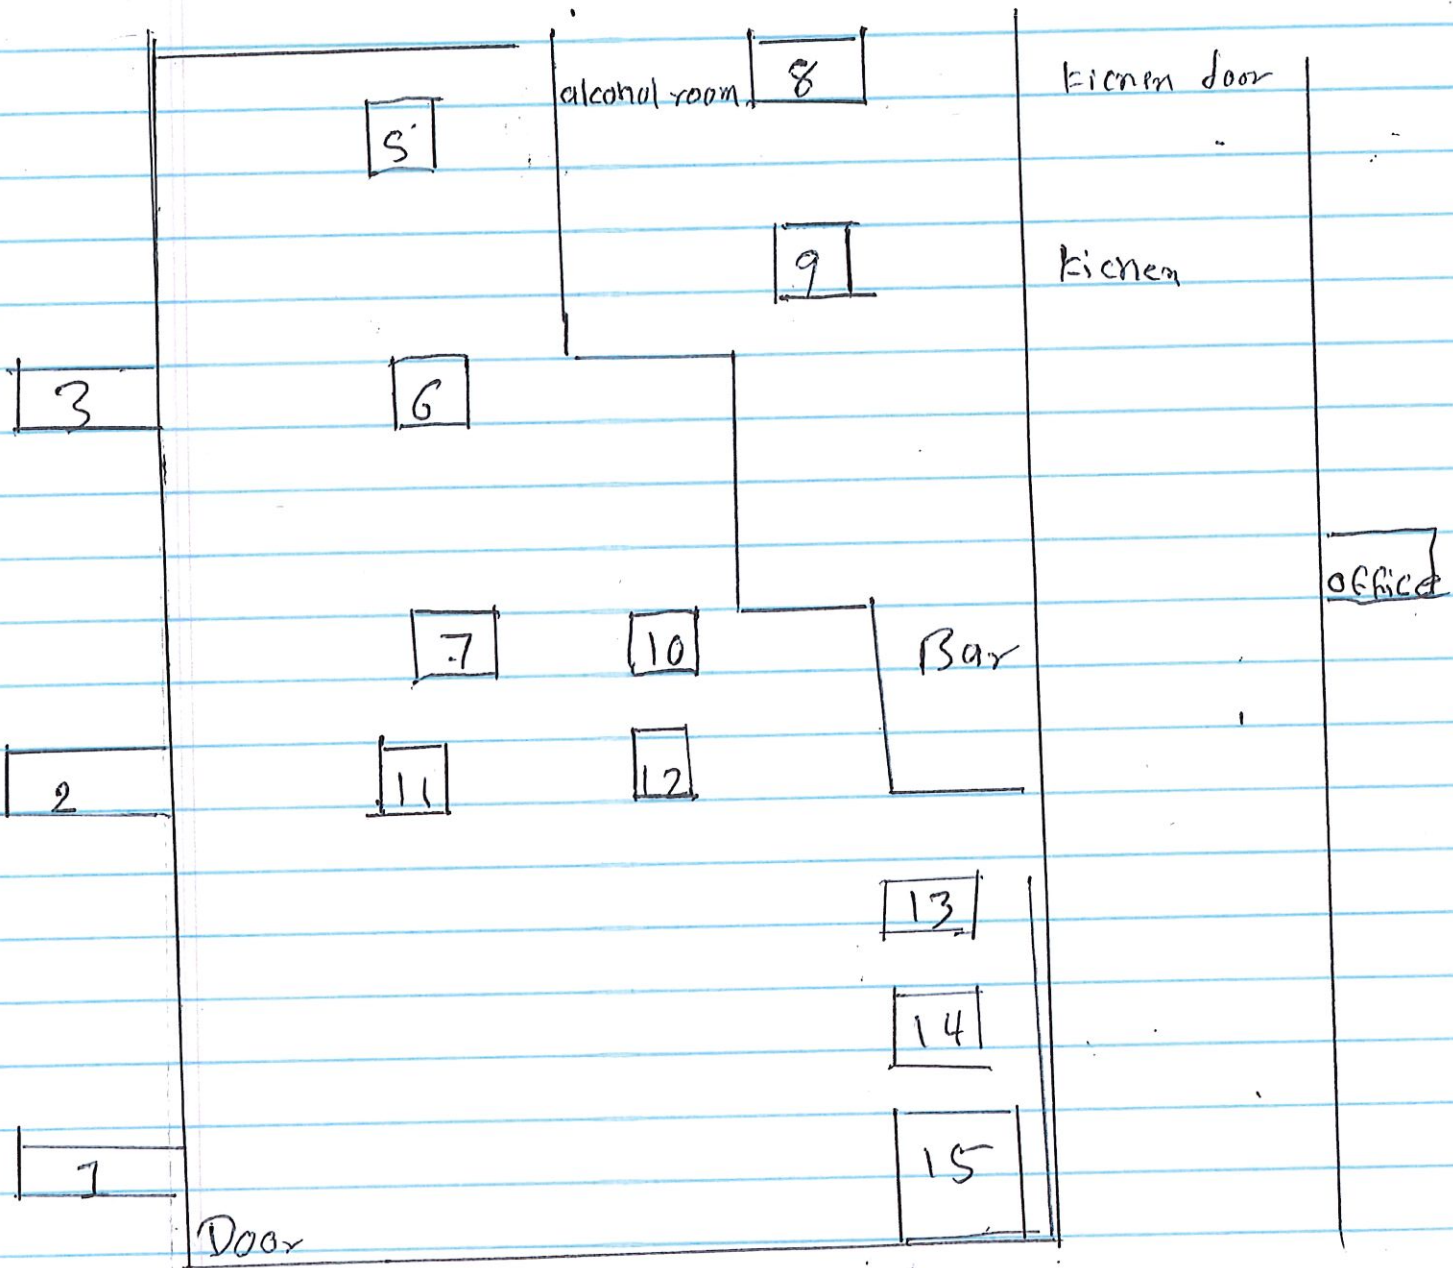 alcohol room
8
Kicnen door
5
9
Kicnen
3
6
office
7
10
Bar
2
11
12
13
14
1
15
Door